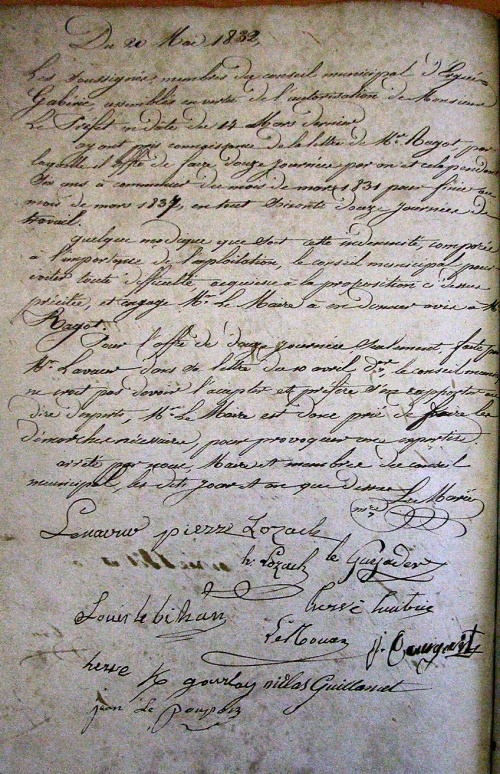 Du 20 Mai 1832,
Les soussignés, membres du conseil municipal d'
Gabéric, assemblés en vertu de l'autorisation de Monsieur
Le Préfet en date du 14 Mars dernier
ayant pris connaissance de la lettre de Mr. Ragot par
laquelle il offre de faire douze journées par an et cela pendant
Six ans à commencer du mois de mars 1831 pour finir au
mois de mars 1837, en tout Soixante douze journées de
travail.
quelque modique que soit cette indemnité, comparée
à l'importance de l'exploitation, le conseil municipal, pour
éviter toute difficulté acquiesce à la proposition ci dessus
précitée, et engage Mr. le Maire à en donner avis à Mr.
Ragot.
Pour l'offre de douze journées Seulement, faite par
Mr. dans sa lettre du 10 avril dr, le conseil
ne croit pas devoir l'accepter et préfère s'en rapporter au
dire d'experts, Mr. le Maire est donc prié de faire les
démarches nécessaires, pour provoquer une expertise.
arrêté par nous, Maire et membres du conseil
municipal, les dits jour et an que dessus
Le Maire
pierre Lozach
h. Lozach le Guyader
Louis le bihan hervé
LeNouan
herve gourlay nicolas Guillamet
jean Le